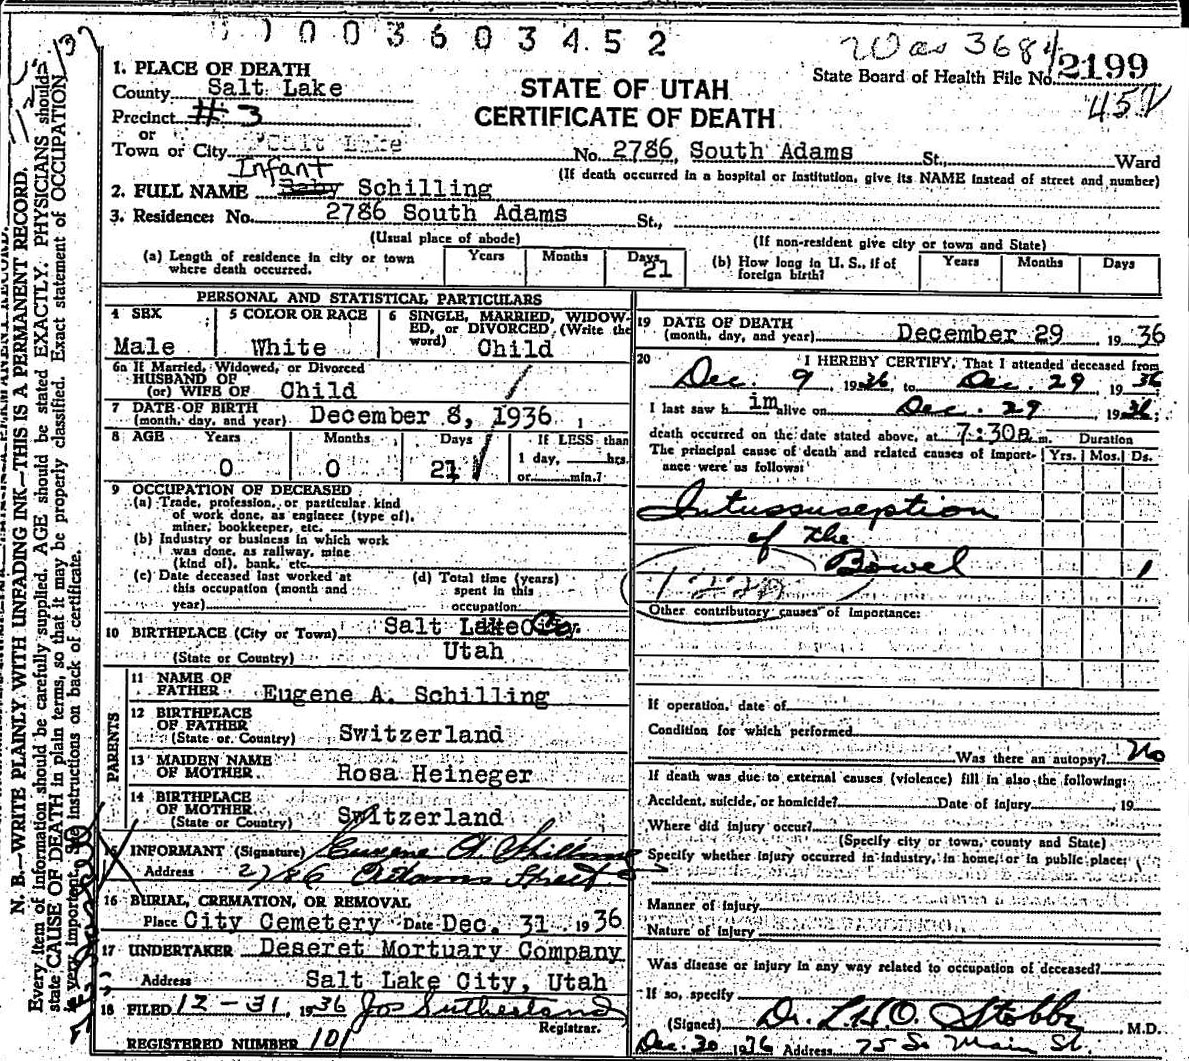 003603452
Was 3684
State Board of Health File No. 2199
1. PLACE OF DEATH
County Salt Lake
STATE OF UTAH
CERTIFICATE OF DEATH
Precinct #3
or
Town or City Salt Lake No. 2786 South Adams St., Ward
(If death occurred in a hospital or institution, give its NAME instead of street and number)
Infant
2. FULL NAME Baby Schilling
3. Residence: No. 2786 South Adams St.,
(Usual place of abode) (If non-resident give city or town and State)
(a) Length of residence in city or town where death occurred. Years Months Days 21
(b) How long in U. S., if of foreign birth? Years Months Days
PERSONAL AND STATISTICAL PARTICULARS
4 SEX Male
5 COLOR OR RACE White
6 SINGLE, MARRIED, WIDOWED, or DIVORCED (Write the word) Child
6a If Married, Widowed, or Divorced
HUSBAND OF
(or) WIFE OF Child
7 DATE OF BIRTH
(month, day, and year) December 8, 1936
8 AGE Years Months Days If LESS than
0 0 21 1 day, hrs.
or min.?
9 OCCUPATION OF DECEASED
(a) Trade, profession, or particular kind
of work done, as engineer (type of),
miner, bookkeeper, etc.
(b) Industry or business in which work
was done, as railway, mine
(kind of), bank, etc.
(c) Date deceased last worked at
this occupation (month and
year)
(d) Total time (years)
spent in this
occupation
10 BIRTHPLACE (City or Town) Salt Lake City
(State or Country) Utah
PARENTS
11 NAME OF
FATHER Eugene A. Schilling
12 BIRTHPLACE
OF FATHER
(State or Country) Switzerland
13 MAIDEN NAME
OF MOTHER Rosa Heineger
14 BIRTHPLACE
OF MOTHER
(State or Country) Switzerland
15 INFORMANT (Signature) Eugene A. Schilling
Address 2786 Adams Street
16 BURIAL, CREMATION, OR REMOVAL
Place City Cemetery Date Dec. 31 1936
17 UNDERTAKER Deseret Mortuary Company
Address Salt Lake City, Utah
18 FILED 12-31, 1936 Jos Sutherland
Registrar.
REGISTERED NUMBER 101
19 DATE OF DEATH
(month, day, and year) December 29 1936
20 I HEREBY CERTIFY, That I attended deceased from
Dec. 9, 1936, to Dec. 29 1936
I last saw him alive on Dec. 29 1936;
death occurred on the date stated above, at 7:30a m. Duration
The principal cause of death and related causes of importance were as follows: Yrs. Mos. Ds.
Intussuseption
of the
Bowel 1
Other contributory causes of importance:
If operation, date of
Condition for which performed
Was there an autopsy? No
If death was due to external causes (violence) fill in also the following:
Accident, suicide, or homicide? Date of injury 19
Where did injury occur?
(Specify city or town, county and State)
Specify whether injury occurred in industry, in home, or in public place:
Manner of injury
Nature of injury
Was disease or injury in any way related to occupation of deceased?
If so, specify
(Signed) Dr. L.H.O. Stobbe M.D.
Dec. 30 1936 Address 75 So Main St.
N. B.—WRITE PLAINLY, WITH UNFADING INK—THIS IS A PERMANENT RECORD.
Every item of information should be carefully supplied. AGE should be stated EXACTLY. PHYSICIANS should
state CAUSE OF DEATH in plain terms, so that it may be properly classified. Exact statement of OCCUPATION
is very important. See instructions on back of certificate.